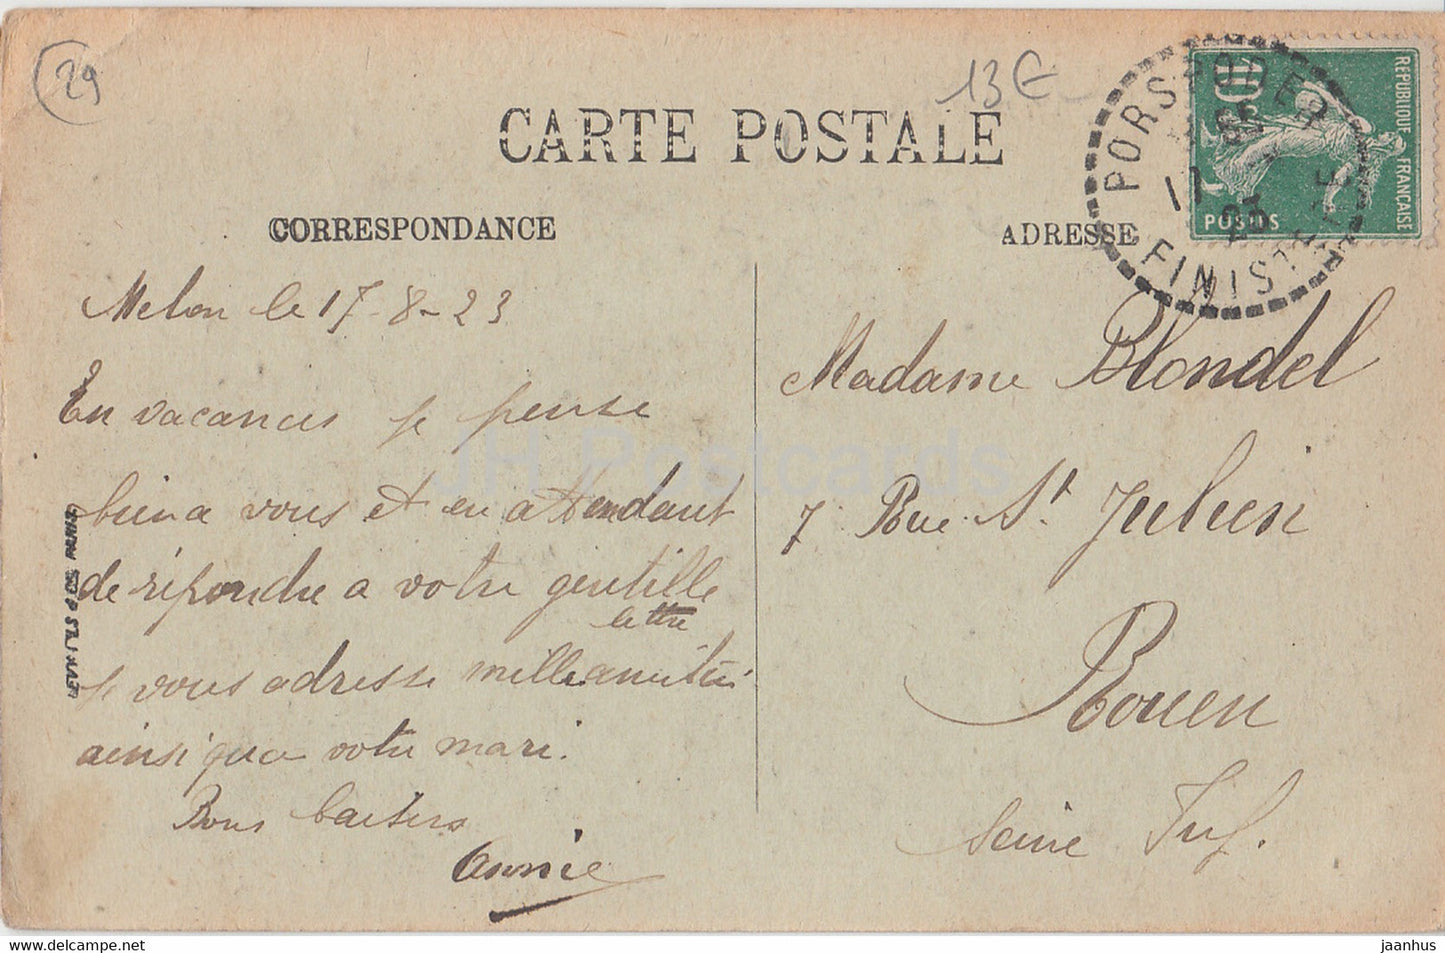 29
13€
CARTE POSTALE
CORRESPONDANCE
ADRESSE
PORSPODER
17
23
FINISTERE
REPUBLIQUE FRANCAISE
10
POSTES
Melon le 17-8-23
En vacances je pense
bien a vous et en attendant
de répondre a votre gentille
lettre
je vous adresse mille amitiés
ainsi qua votre mari.
Bons baisers
Annie
Madame Blondel
7 Rue St Julien
Rouen
Seine Inf.
LEVY FILS & CIE PARIS
JH Postcards
www.delcampe.net
jaanhus